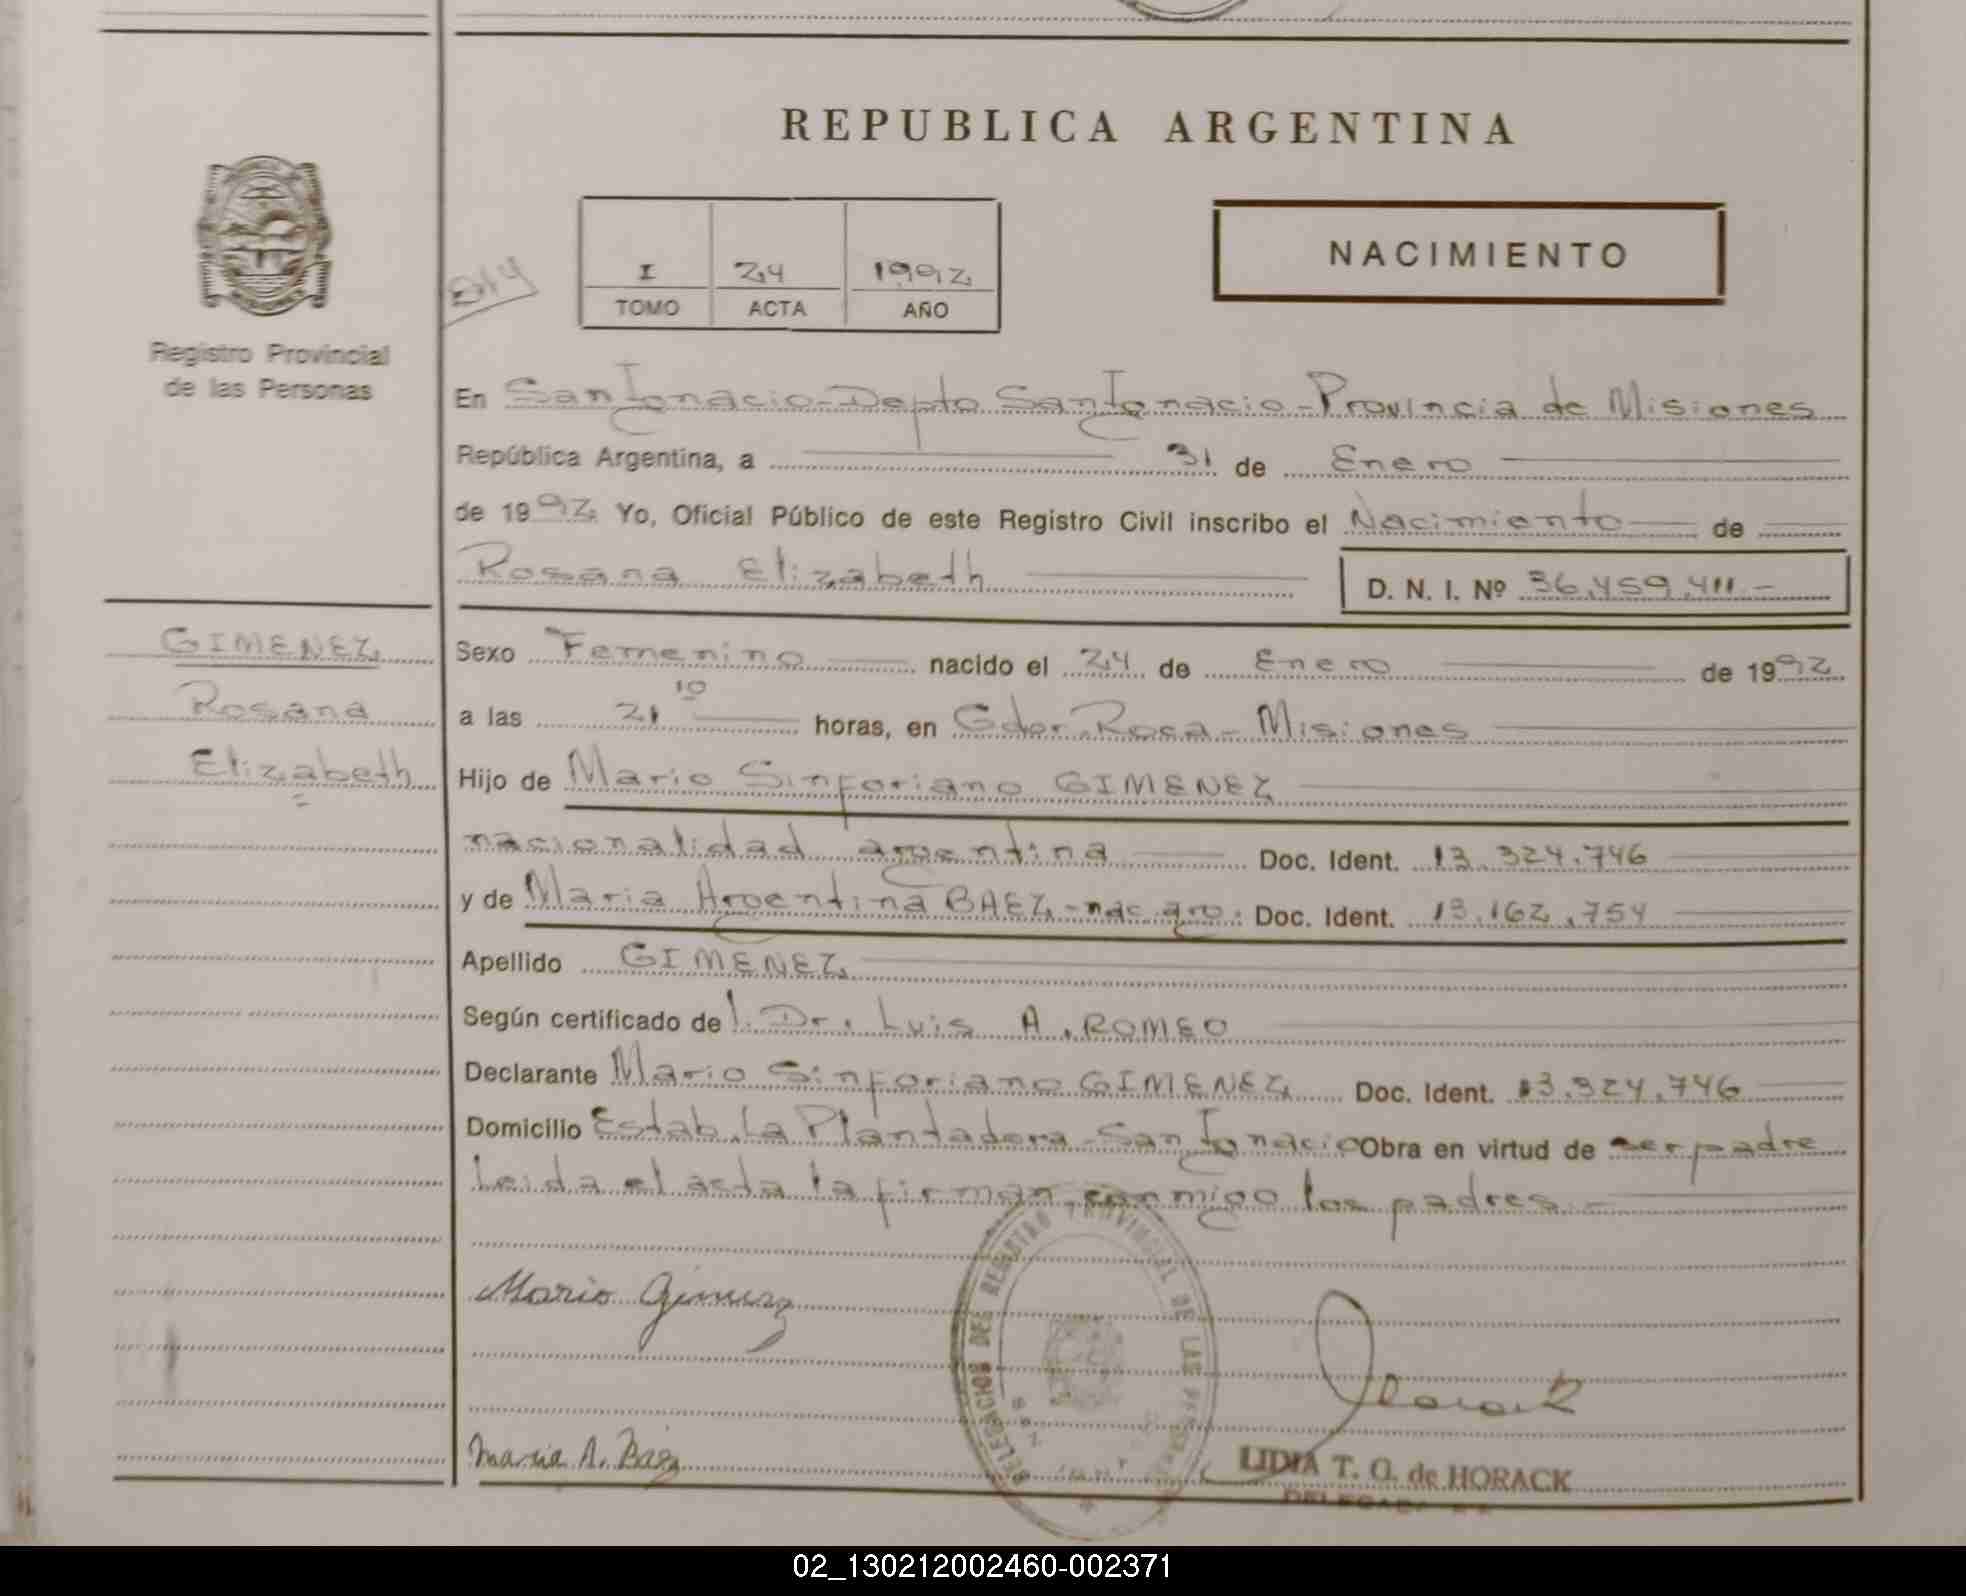 REPUBLICA ARGENTINA
NACIMIENTO
I 24 1992
TOMO ACTA AÑO
Registro Provincial
de las Personas
En San Ignacio - Depto San Ignacio - Provincia de Misiones
República Argentina, a 31 de Enero
de 1992 Yo, Oficial Público de este Registro Civil inscribo el Nacimiento de
Rosana Elizabeth D. N. I. Nº 36.459.411.-
GIMENEZ
Rosana
Elizabeth
Sexo Femenino nacido el 24 de Enero de 1992
a las 21 10 horas, en Gdor. Roca - Misiones
Hijo de Mario Sinforiano GIMENEZ
nacionalidad argentina Doc. Ident. 13.324.746
y de Maria Argentina BAEZ - nac. arg. Doc. Ident. 13.162.754
Apellido GIMENEZ
Según certificado de Dr. Luis A. ROMEO
Declarante Mario Sinforiano GIMENEZ Doc. Ident. 13.324.746
Domicilio Estab. La Plantadora - San Ignacio Obra en virtud de ser padre
Leida el acta la firman conmigo los padres.-
Mario Gimenez
DELEGACION DEL REGISTRO PROVINCIAL DE LAS PERSONAS
Maria A. Baez
LIDIA T. O. de HORACK
DELEGADA
02_130212002460-002371